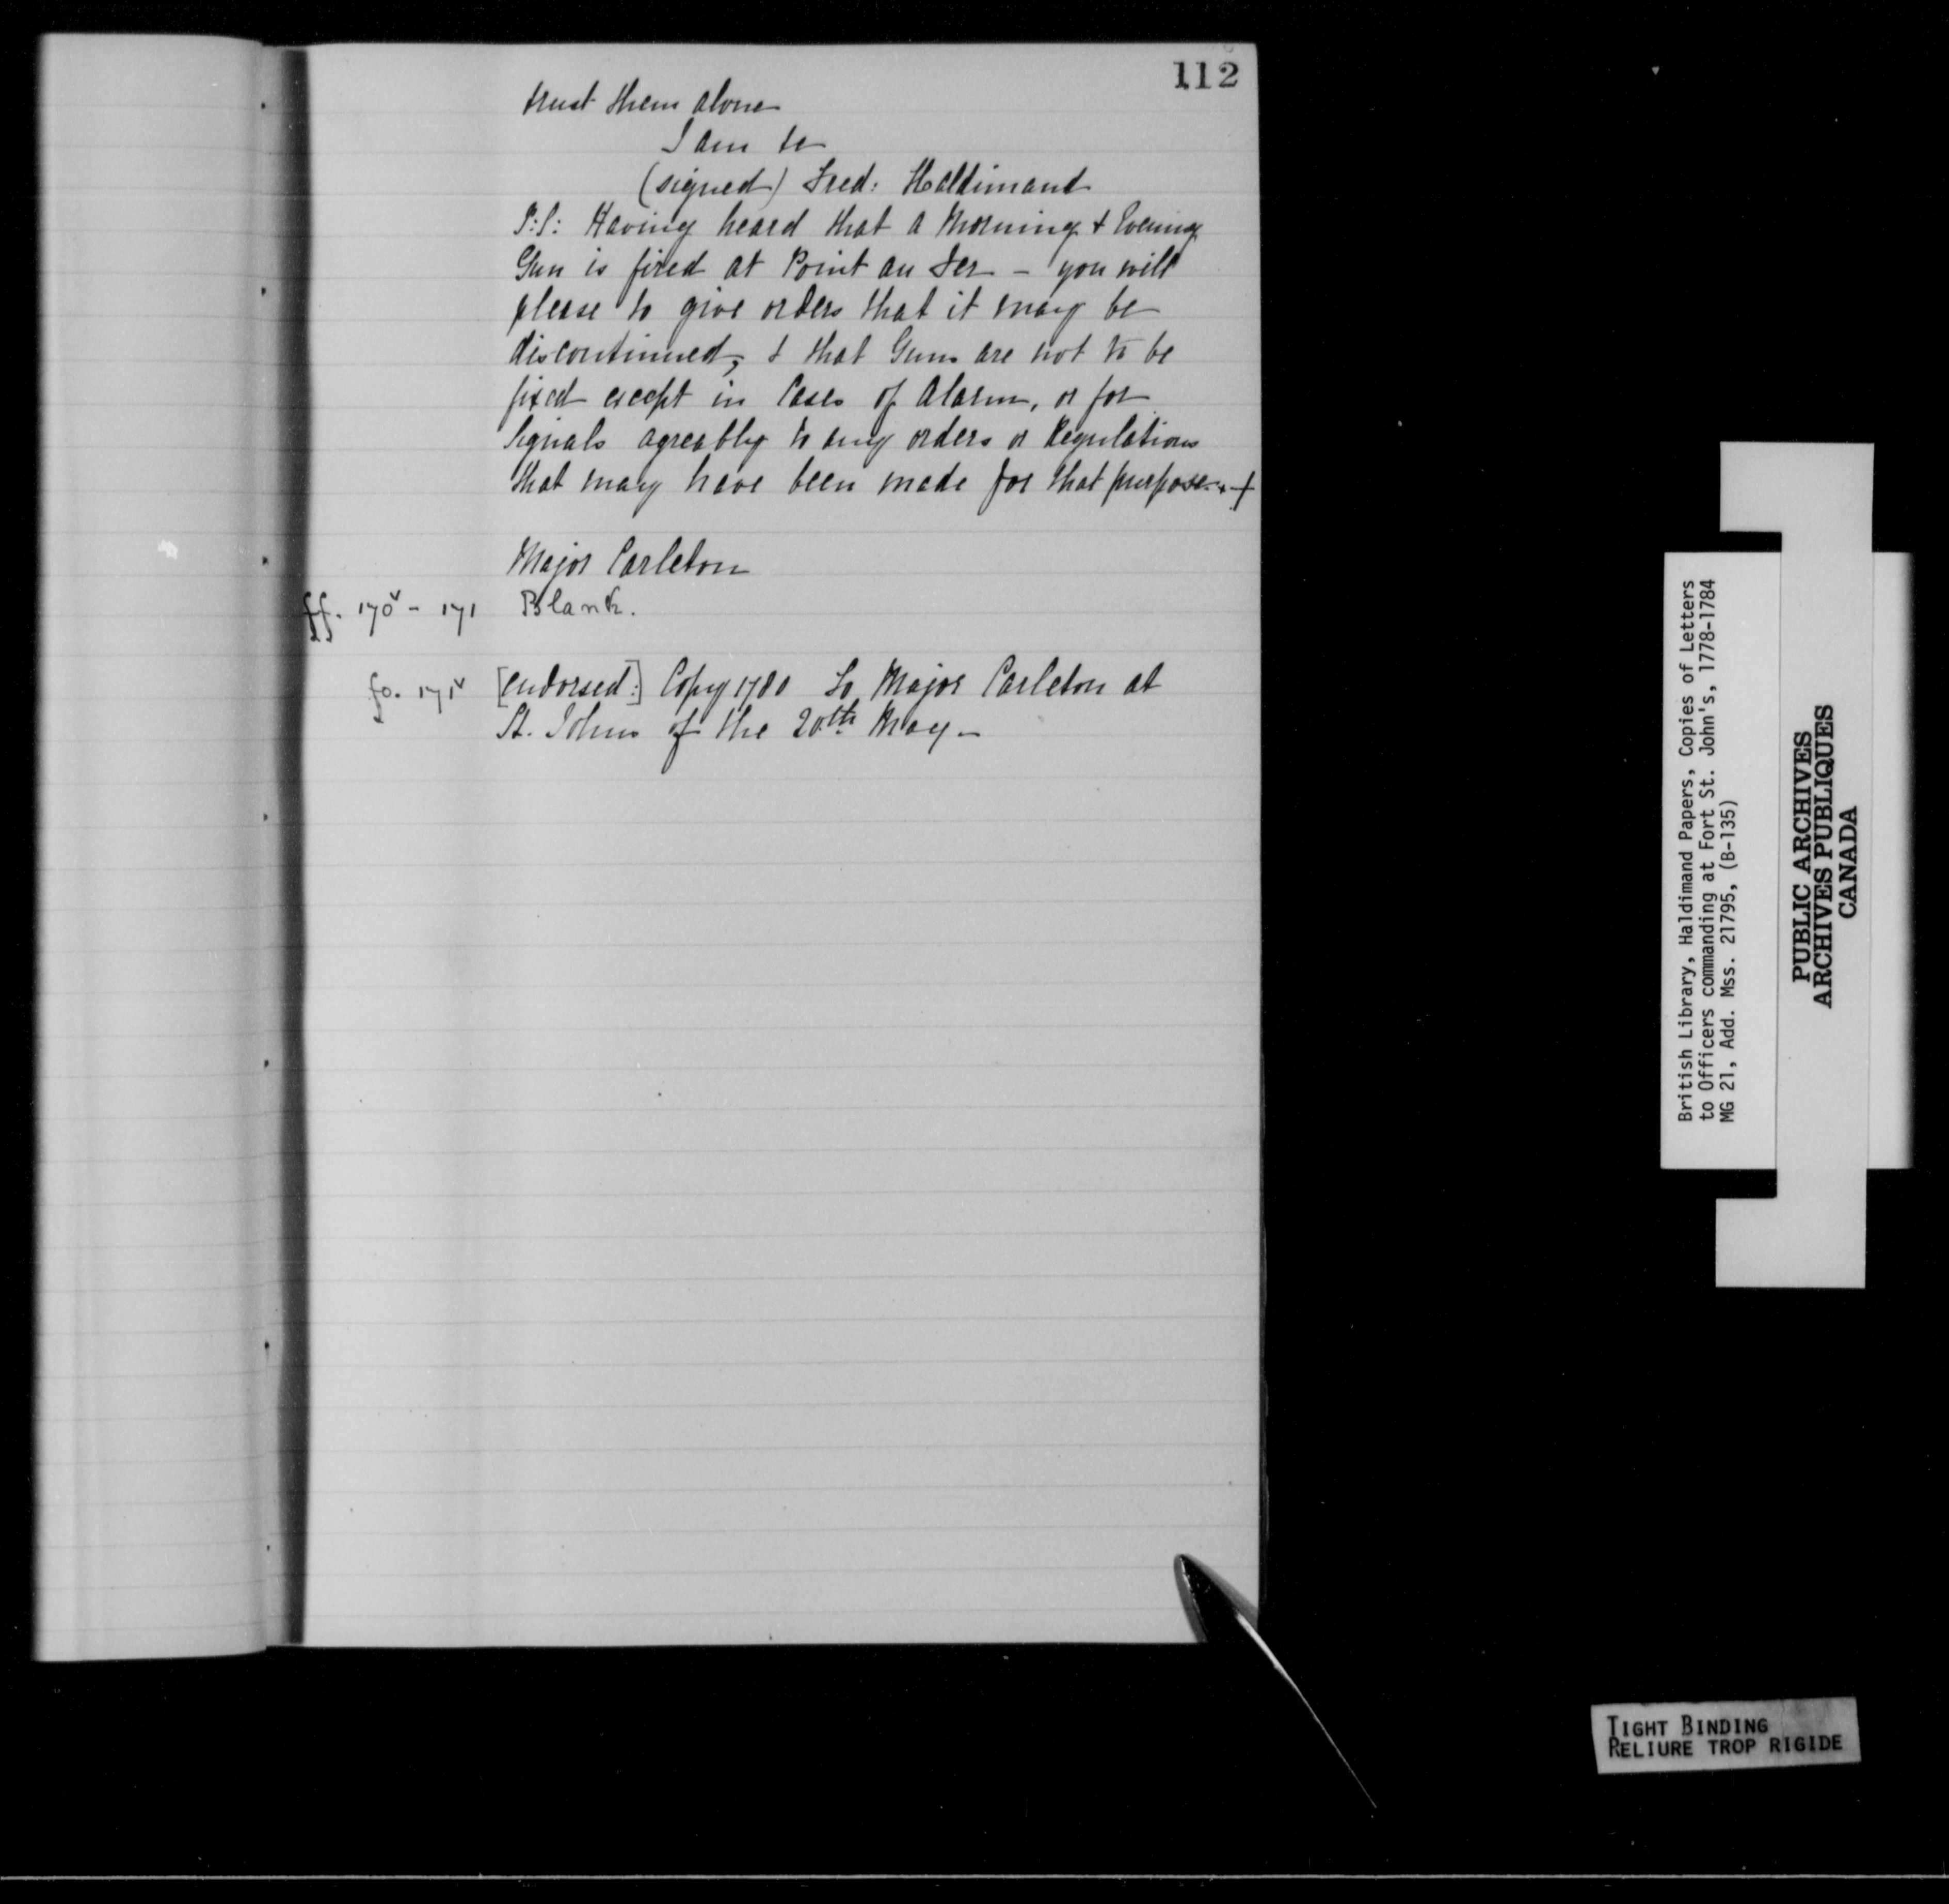 112
trust them alone
I am &c
(signed) Fred: Haldimand
P:S: Having heard that a Morning & Evening
Gun is fired at Point au Fer - you will
please to give orders that it may be
discontinued, & that Guns are not to be
fired except in Cases of Alarm, or for
Signals agreably to any orders or Regulations
that may have been made for that purpose.
Major Carleton
ff. 170v - 171 Blank.
fo. 171v [endorsed:] Copy 1780 To Major Carleton at
St. Johns of the 20th May -
British Library, Haldimand Papers, Copies of Letters
to Officers commanding at Fort St. John's, 1778-1784
MG 21, Add. Mss. 21795, (B-135)
PUBLIC ARCHIVES
ARCHIVES PUBLIQUES
CANADA
TIGHT BINDING
RELIURE TROP RIGIDE